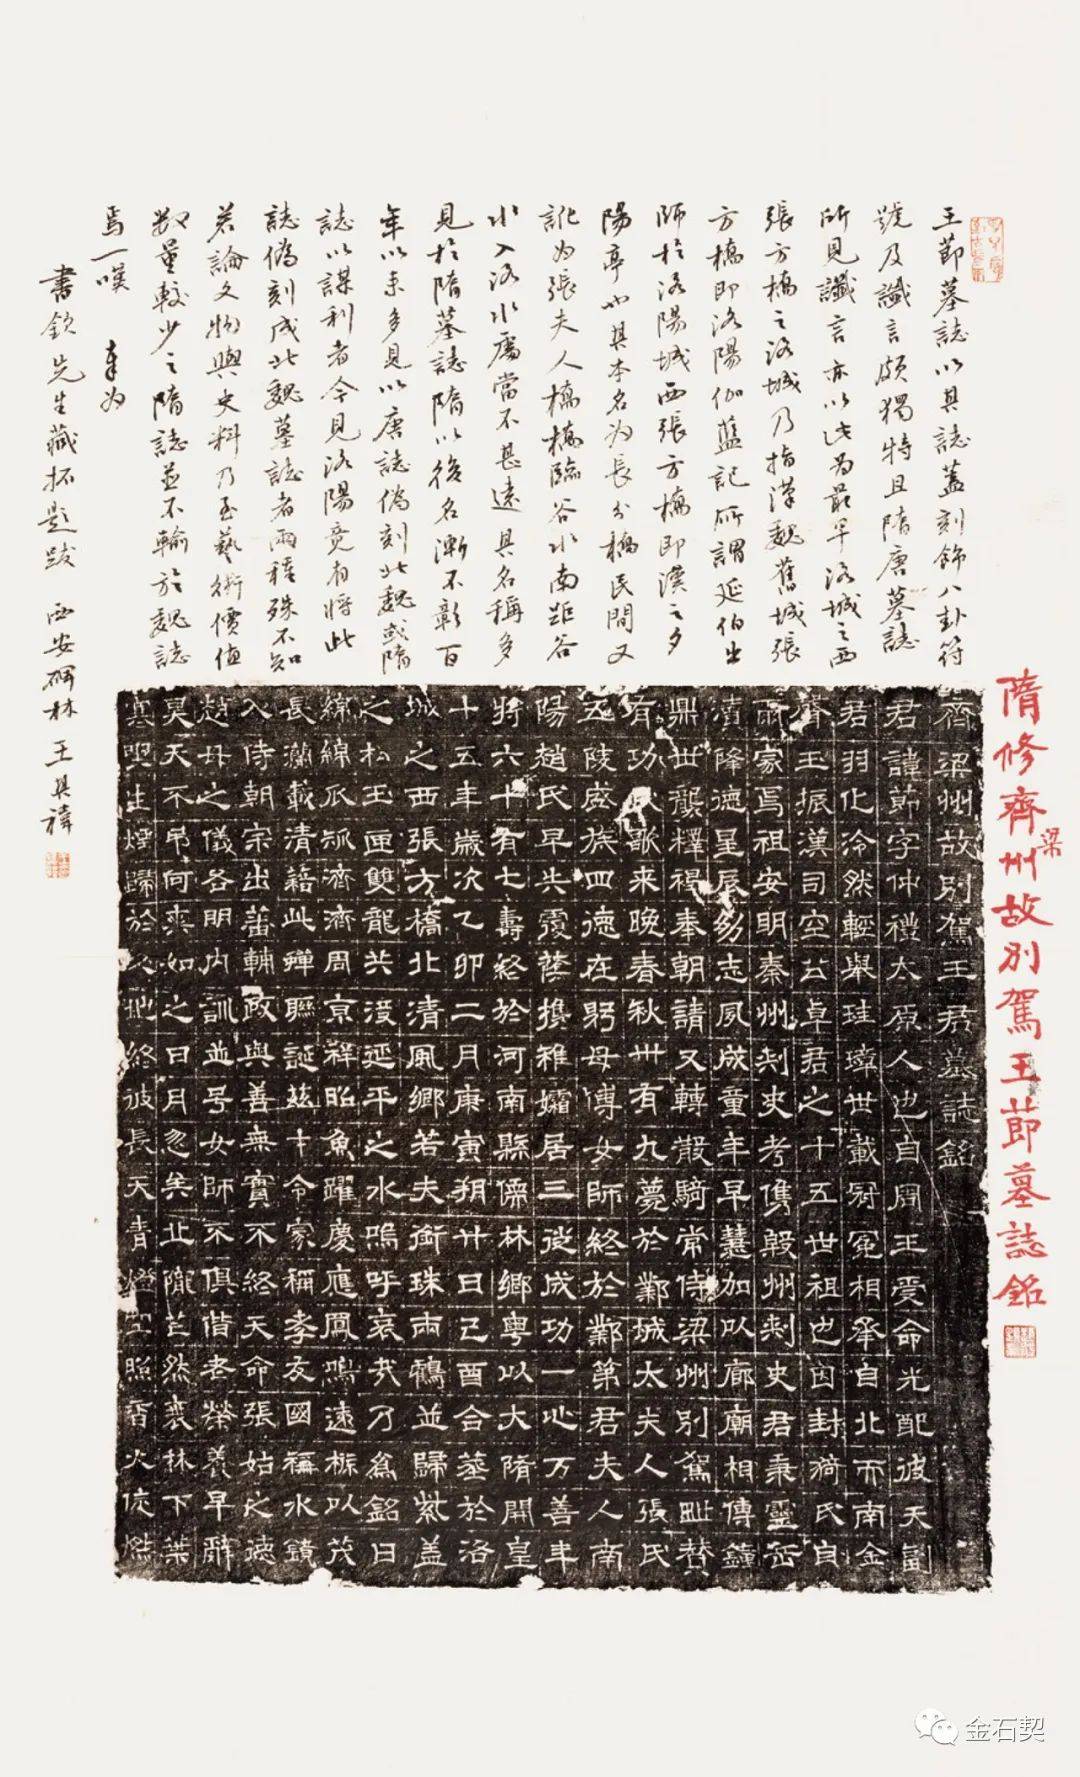 隋修齊梁州故別駕王節墓誌銘
王節墓誌以其誌蓋刻飾八卦符
號及讖言頗獨特且隋唐墓誌
所見讖言亦以此為最早洛城之西
張方橋之洛城乃指漢魏舊城張
方橋即洛陽伽藍記所謂延伯出
師於洛陽城西張方橋即漢之夕
陽亭也其本名為長分橋民間又
訛為張夫人橋橋臨谷水南距谷
水入洛水處當不甚遠其名稱多
見於隋墓誌隋以後名漸不彰百
年以來多見以唐誌偽刻北魏或隋
誌以謀利者今見洛陽竟有將此
誌偽刻成北魏墓誌者兩種殊不知
若論文物與史料乃至藝術價值
數量較少之隋誌並不輸於魏誌
焉一嘆 奉為
書欽先生藏拓題跋 西安碑林王其禕
齊梁州故別駕王君墓誌銘
君諱節字仲禮太原人也自周王受命光配彼天副
君羽化泠然輕舉珪璋世載冠冕相承自北而南金
聲玉振漢司空公卓君之十五世祖也因封猗氏自
家焉祖安明秦州刺史考儁殷州刺史君秉靈岳
瀆降德星辰多志夙成童年早慧加以廊廟相傳鐘
鼎世襲釋褐奉朝請又轉散騎常侍梁州別駕毗贊
有功 歌來晚春秋卌有九薨於鄴城太夫人張氏
五陵盛族四德在躬母傅女師終於鄴第君夫人南
陽趙氏早失覆蔭攜稚孀居三從成功一心万善年
將六十有七壽終於河南縣儒林鄉粵以大隋開皇
十五年歲次乙卯二月庚寅朔廿日己酉合葬於洛
城之西張方橋北清風鄉若夫銜珠兩鶴並歸紫蓋
之松玉匣雙龍共沒延平之水嗚呼哀哉乃為銘曰
綿綿瓜瓞濟濟周京祥昭魚躍慶應鳳鳴遠條以茂
長瀾載清藉此蟬聯誕茲十令家稱孝友國稱水鏡
入侍朝宗出蕃輔政與善無實不終天命張姑之德
趙母之儀各明內訓並号女師不俱偕老榮養早辭
昊天不弔何其如之日月忽矣丘隴芒然襄林下葉
寒 生煙歸於 地終彼長天青燈空照香火徒然
金石契